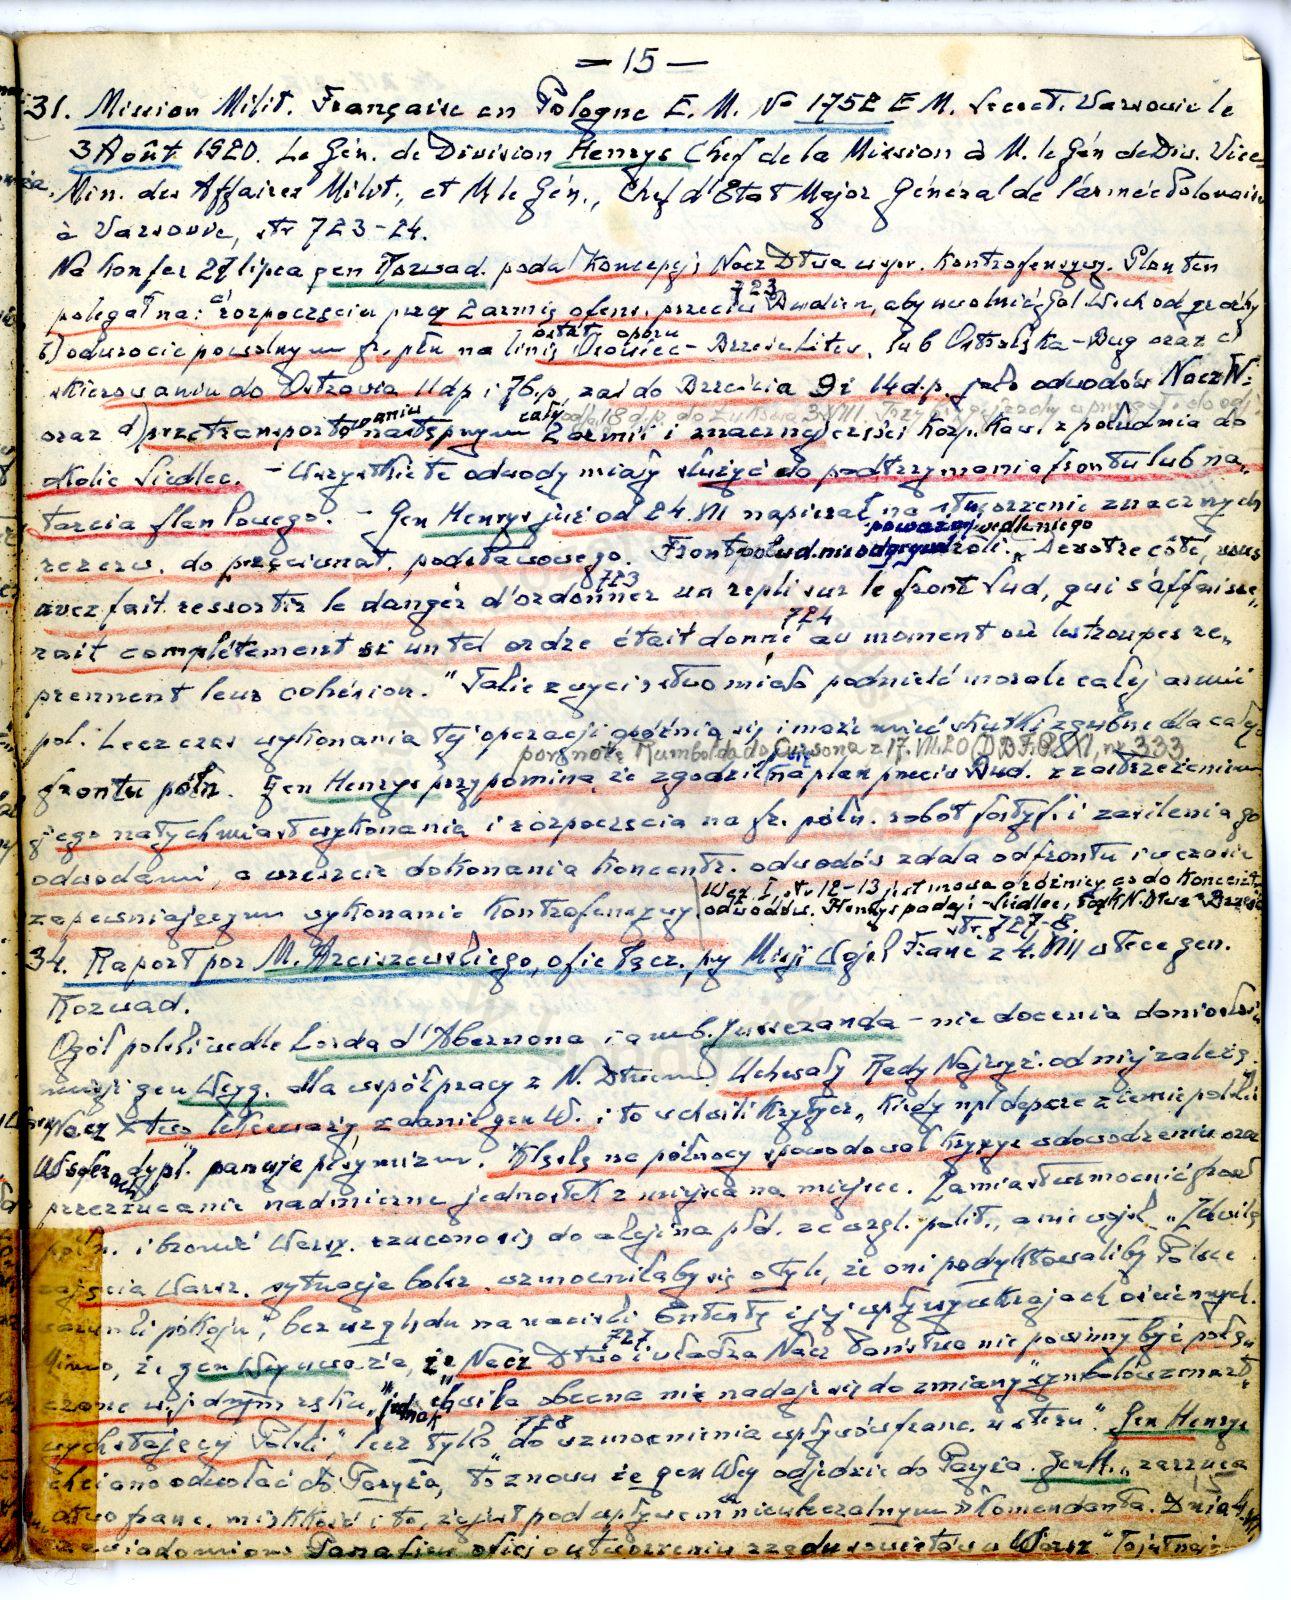 — 15 —
31. Mission Milit. Française en Pologne E. M. No 1752 E M. Secret. Varsovie le
3 Août 1920. Le Gén. de Division Henrys Chef de la Mission à M. le Gén de Div. Vice-
Min. des Affaires Milit., et M le Gén., Chef d'Etat Major Général de l'armée Polonaise
à Varsovie, str 723-24.
Na konfer 27 lipca gen Rozwad. podał koncepcję Nacz Dtwa w spr. kontrofensywy. Plan ten
polegał na: a) rozpoczęciu przez 2 armię ofens. przeciw 723 Budien, aby uwolnić Gal Wsch od groźby
b) odwrocie powolnym fr. płn na linię ostat oporu Osowiec - Brześć Litew. lub Ostrołęka - Bug oraz c)
skierowaniu do Ostrowia 11 dp i 7 b.p, zaś do Brześcia 9 i 14 d.p. jako odwodów Nacz W.
oraz d) przetransportowaniu następnym całej 2 armii i znacznej części korp. kaw. z południa do
okolic Siedlec. - Wszystkie te odwody miały służyć do podtrzymania frontu lub na-
tarcia flankowego. - Gen Henrys już od 24.VII napierał na stworzenie znacznych
rezerw. do przeciwnat. podstawowego. Front połud. nie odgrywał poważnej wedle niego roli: „De votre côté, vous
avez fait ressortir le danger d'ordonner 723 un repli sur le front Sud, qui s'affaisse-
rait complètement si un tel ordre était donné 724 au moment où les troupes re-
prennent leur cohésion." Takie zwycięstwo miało podnieść morale całej armii
pol. Lecz czas wykonania tej operacji opóźnia się i może mieć skutki zgubne dla całego
por notę Rumbolda do Curzona z 17.VII.20 (DBFP, XI, nr 333
frontu półn. Gen Henrys przypomina, że zgodził się na plan przeciw Bud. z zastrzeżeniem
jego natychmiast wykonania i rozpoczęcia na fr. półn. robót fortyf. i zasilenia go
odwodami, a wreszcie dokonania koncentr. odwodów zdala od frontu i w czasie
zapewniającym wykonanie kontrofensywy.
Węz I, str 12-13 jest mowa o różnicy co do koncentr.
odwodów. Henrys podaje - Siedlce, N. Dtwa - Brześć
str. 727-8.
34. Raport por M. Arciszewskiego, ofic łącz. przy Misji Wojsk Franc z 4.VIII w tece gen.
Rozwad.
Ogół polski wedle Lorda d'Abernona i amb. Jusseranda - nie docenia doniosłości
misji gen Weyg. dla współpracy z N. Dtwem. Uchwały Rady Najwyż. od niej zależą.
Nacz Dtwo lekceważy zdanie gen W. i to w chwili krytycz, kiedy npl depcze ziemie polskie
W sferach dypl. panuje pesymizm. Klęskę na północy spowodował kryzys w dowodzeniu oraz
przerzucanie nadmierne jednostek z miejsca na miejsce. Zamiast wzmocnić front
półn. i bronić Warsz. rzucono się do akcji na płd. ze wzgl. polit., a nie wojsk. „Z chwilą
zajęcia Warsz. sytuacja bolsz. wzmocniłaby się o tyle, że oni podyktowaliby Polsce
warunki pokoju", bez względu na naciski Ententy i jej wpływy w krajach ościennych.
Mimo, że gen Wey uważa, że „Nacz Dtwo 727 i władza Nacz Państwa nie powinny być połą-
czone w jednym ręku" jednak „chwila obecna nie nadaje się do zmiany symbolów zmartw-
wychstającej Polski", lecz tylko 728 „do wzmocnienia wpływów franc. u steru". Gen Henrys
chciano odwołać do Paryża, to znowu że gen Wey odjedzie do Paryża. Gen H. zarzuca
dtwo franc. miękkość i to, że jest pod wpływem nieuleczalnym „Komendanta. Dnia 4.VIII
zawiadomiono Panafieu oficj o utworzeniu rządu sowietów w Warsz"